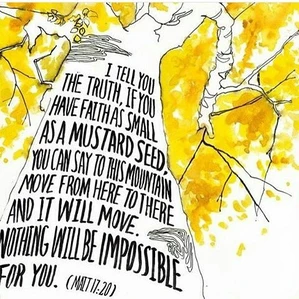 I TELL YOU
THE TRUTH, IF YOU
HAVE FAITH AS SMALL
AS A MUSTARD SEED,
YOU CAN SAY TO THIS MOUNTAIN
MOVE FROM HERE TO THERE
AND IT WILL MOVE.
NOTHING WILL BE IMPOSSIBLE
FOR YOU. (MATT 17:20)